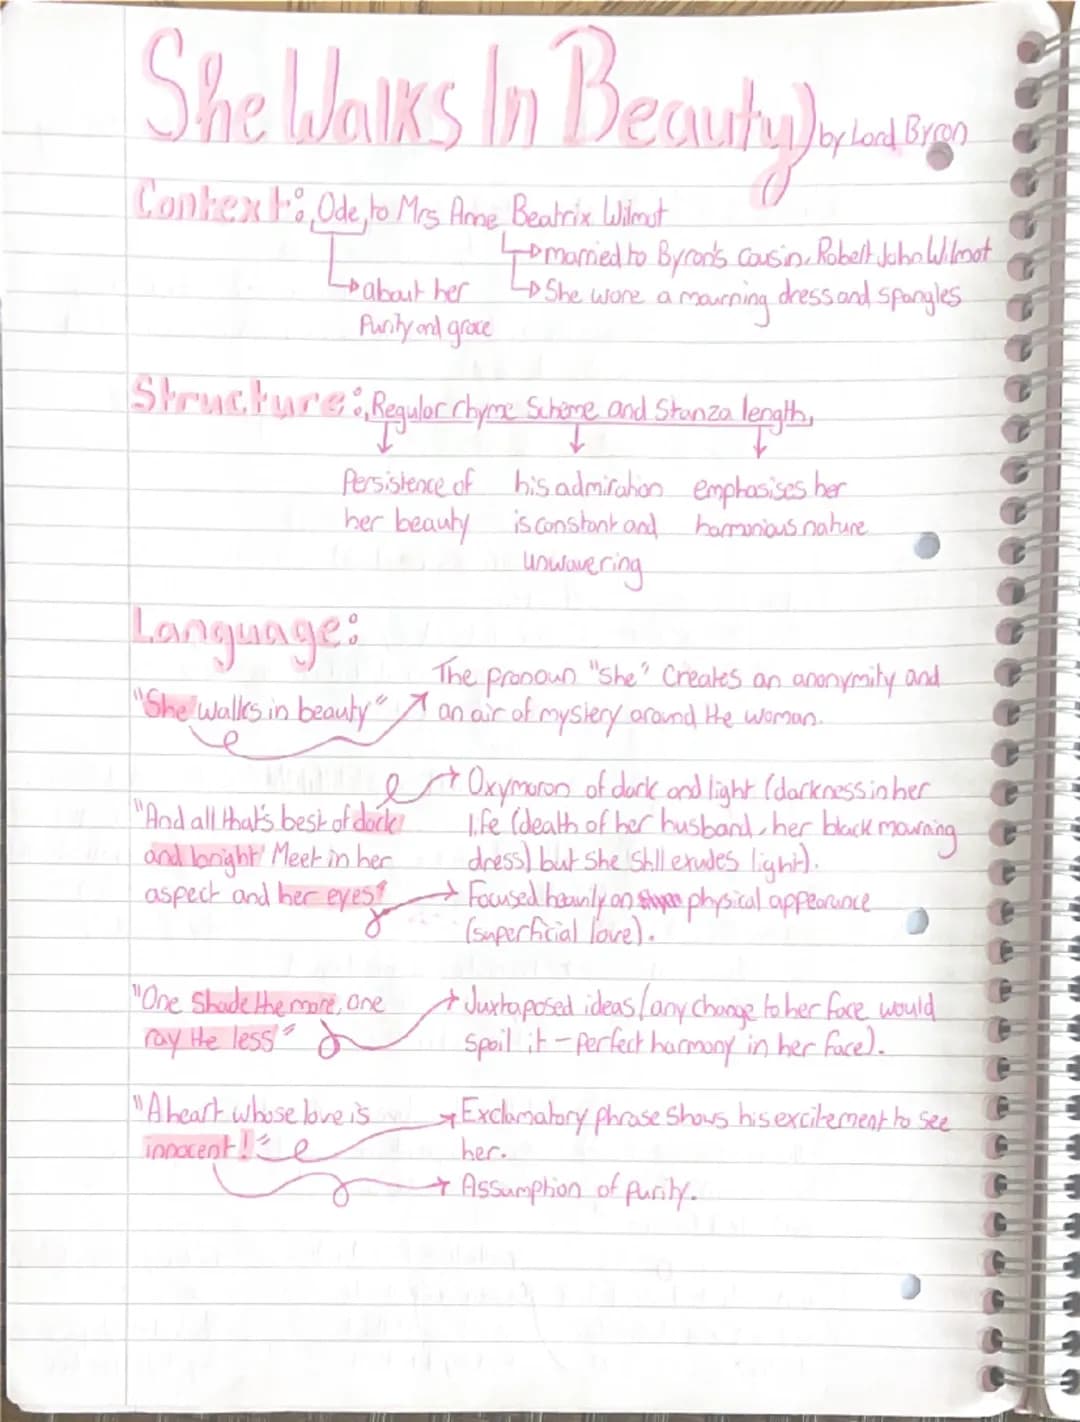 She Walks In Beauty) by Lord Byron
Context: Ode to Mrs Anne Beatrix Wilmot
married to Byron's cousin, Robert John Wilmot
about her She wore a mourning dress and spangles
Purity and grace
Structure: Regular rhyme scheme and Stanza length,
Persistence of his admiration emphasises her
her beauty is constant and harmonious nature
unwavering
Language:
The pronoun "she" Creates an anonymity and
"She walks in beauty" an air of mystery around the woman.
Oxymoron of dark and light (darkness in her
"And all that's best of dark/ life (death of her husband, her black mourning
and bright/ Meet in her dress) but she still exudes light).
aspect and her eyes" Focused heavily on physical appearance
(superficial love).
"One Shade the more, one Juxtaposed ideas (any change to her face would
ray the less" spoil it - perfect harmony in her face).
"A heart whose love is Exclamatory phrase shows his excitement to see
innocent!" her.
Assumption of purity.